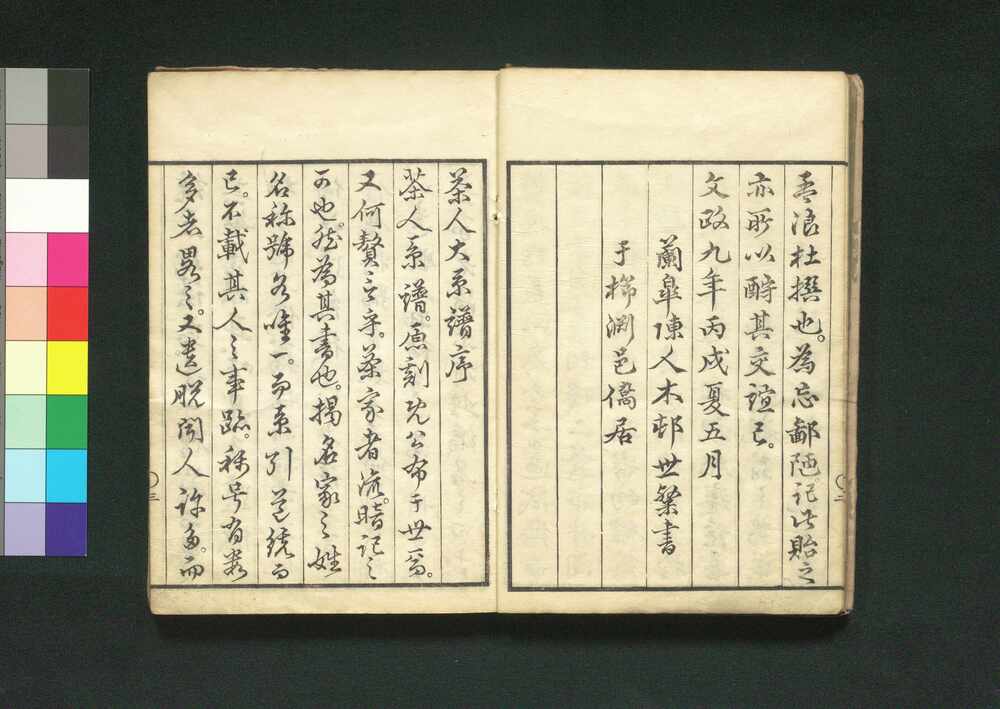 孟浪杜撰也。為忘鄙陋記此貽之
亦所以酬其交誼已。
文政九年丙戌夏五月
蘭皐陳人木邨世粲書
于櫛淵邑僑居
茶人大系譜序
茶人系譜。原刻既公布于世焉。
又何贅言乎。茶家者流。暗記之
可也。然為其書也。揭名家之姓
名称號各唯一。而系引道統而
已。不載其人之事跡。称号有数
多者畧之。又遺脱聞人許多。而
三
三